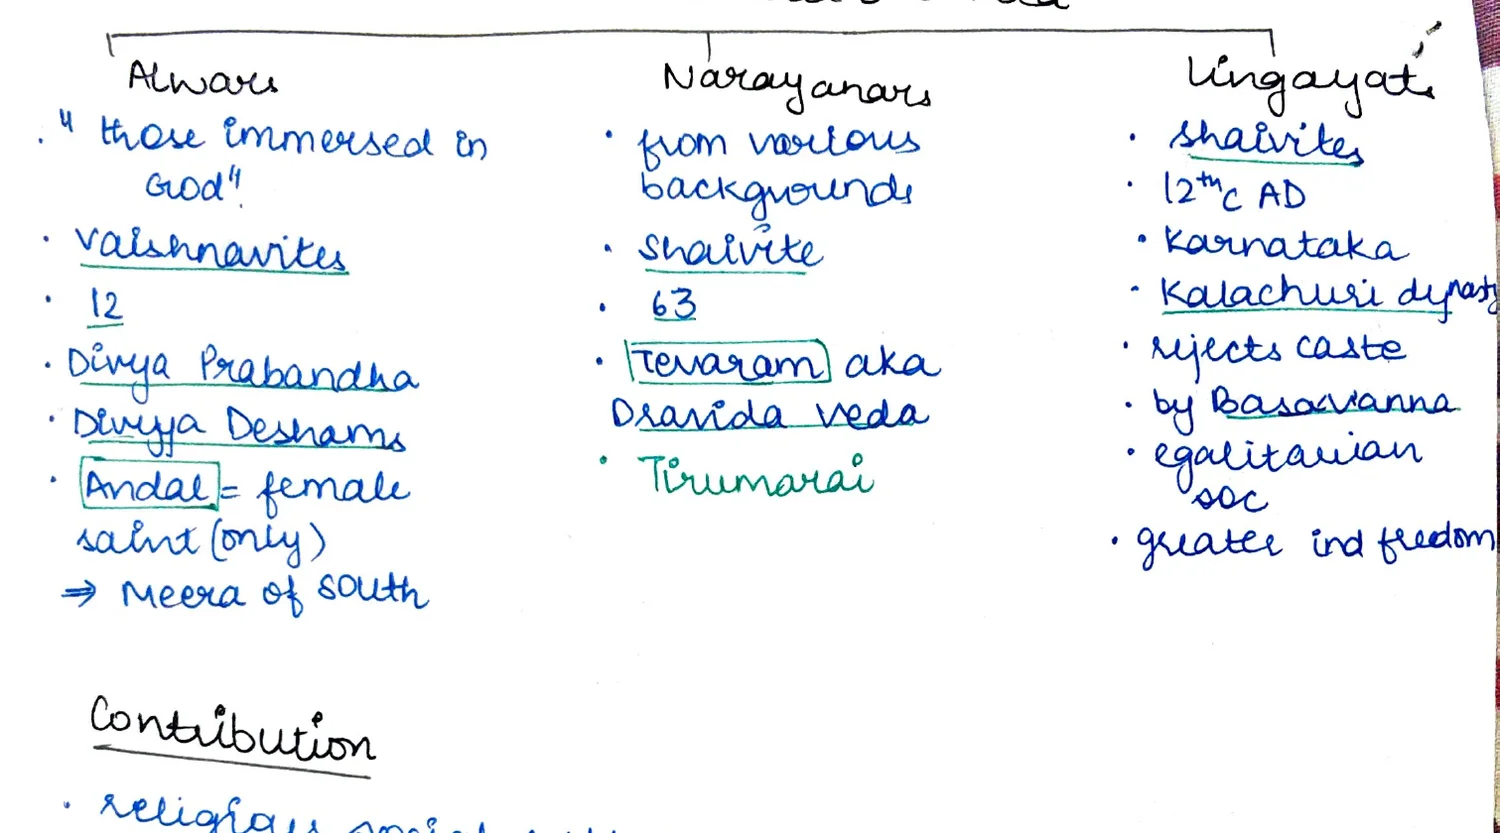 Alwars
"those immersed in
God".
vaishnavites
12
Divya Prabandha
Divyya Deshams
Andal = female
saint (only)
⇒ Meera of south
Narayanars
from various
backgrounds
Shaivite
63
Tevaram aka
Dravida veda
Tirumarai
Lingayats
shaivites
12th C AD
Karnataka
Kalachuri dynasty
rejects caste
by Basavanna
egalitarian
soc
greater ind freedom
Contribution
religious